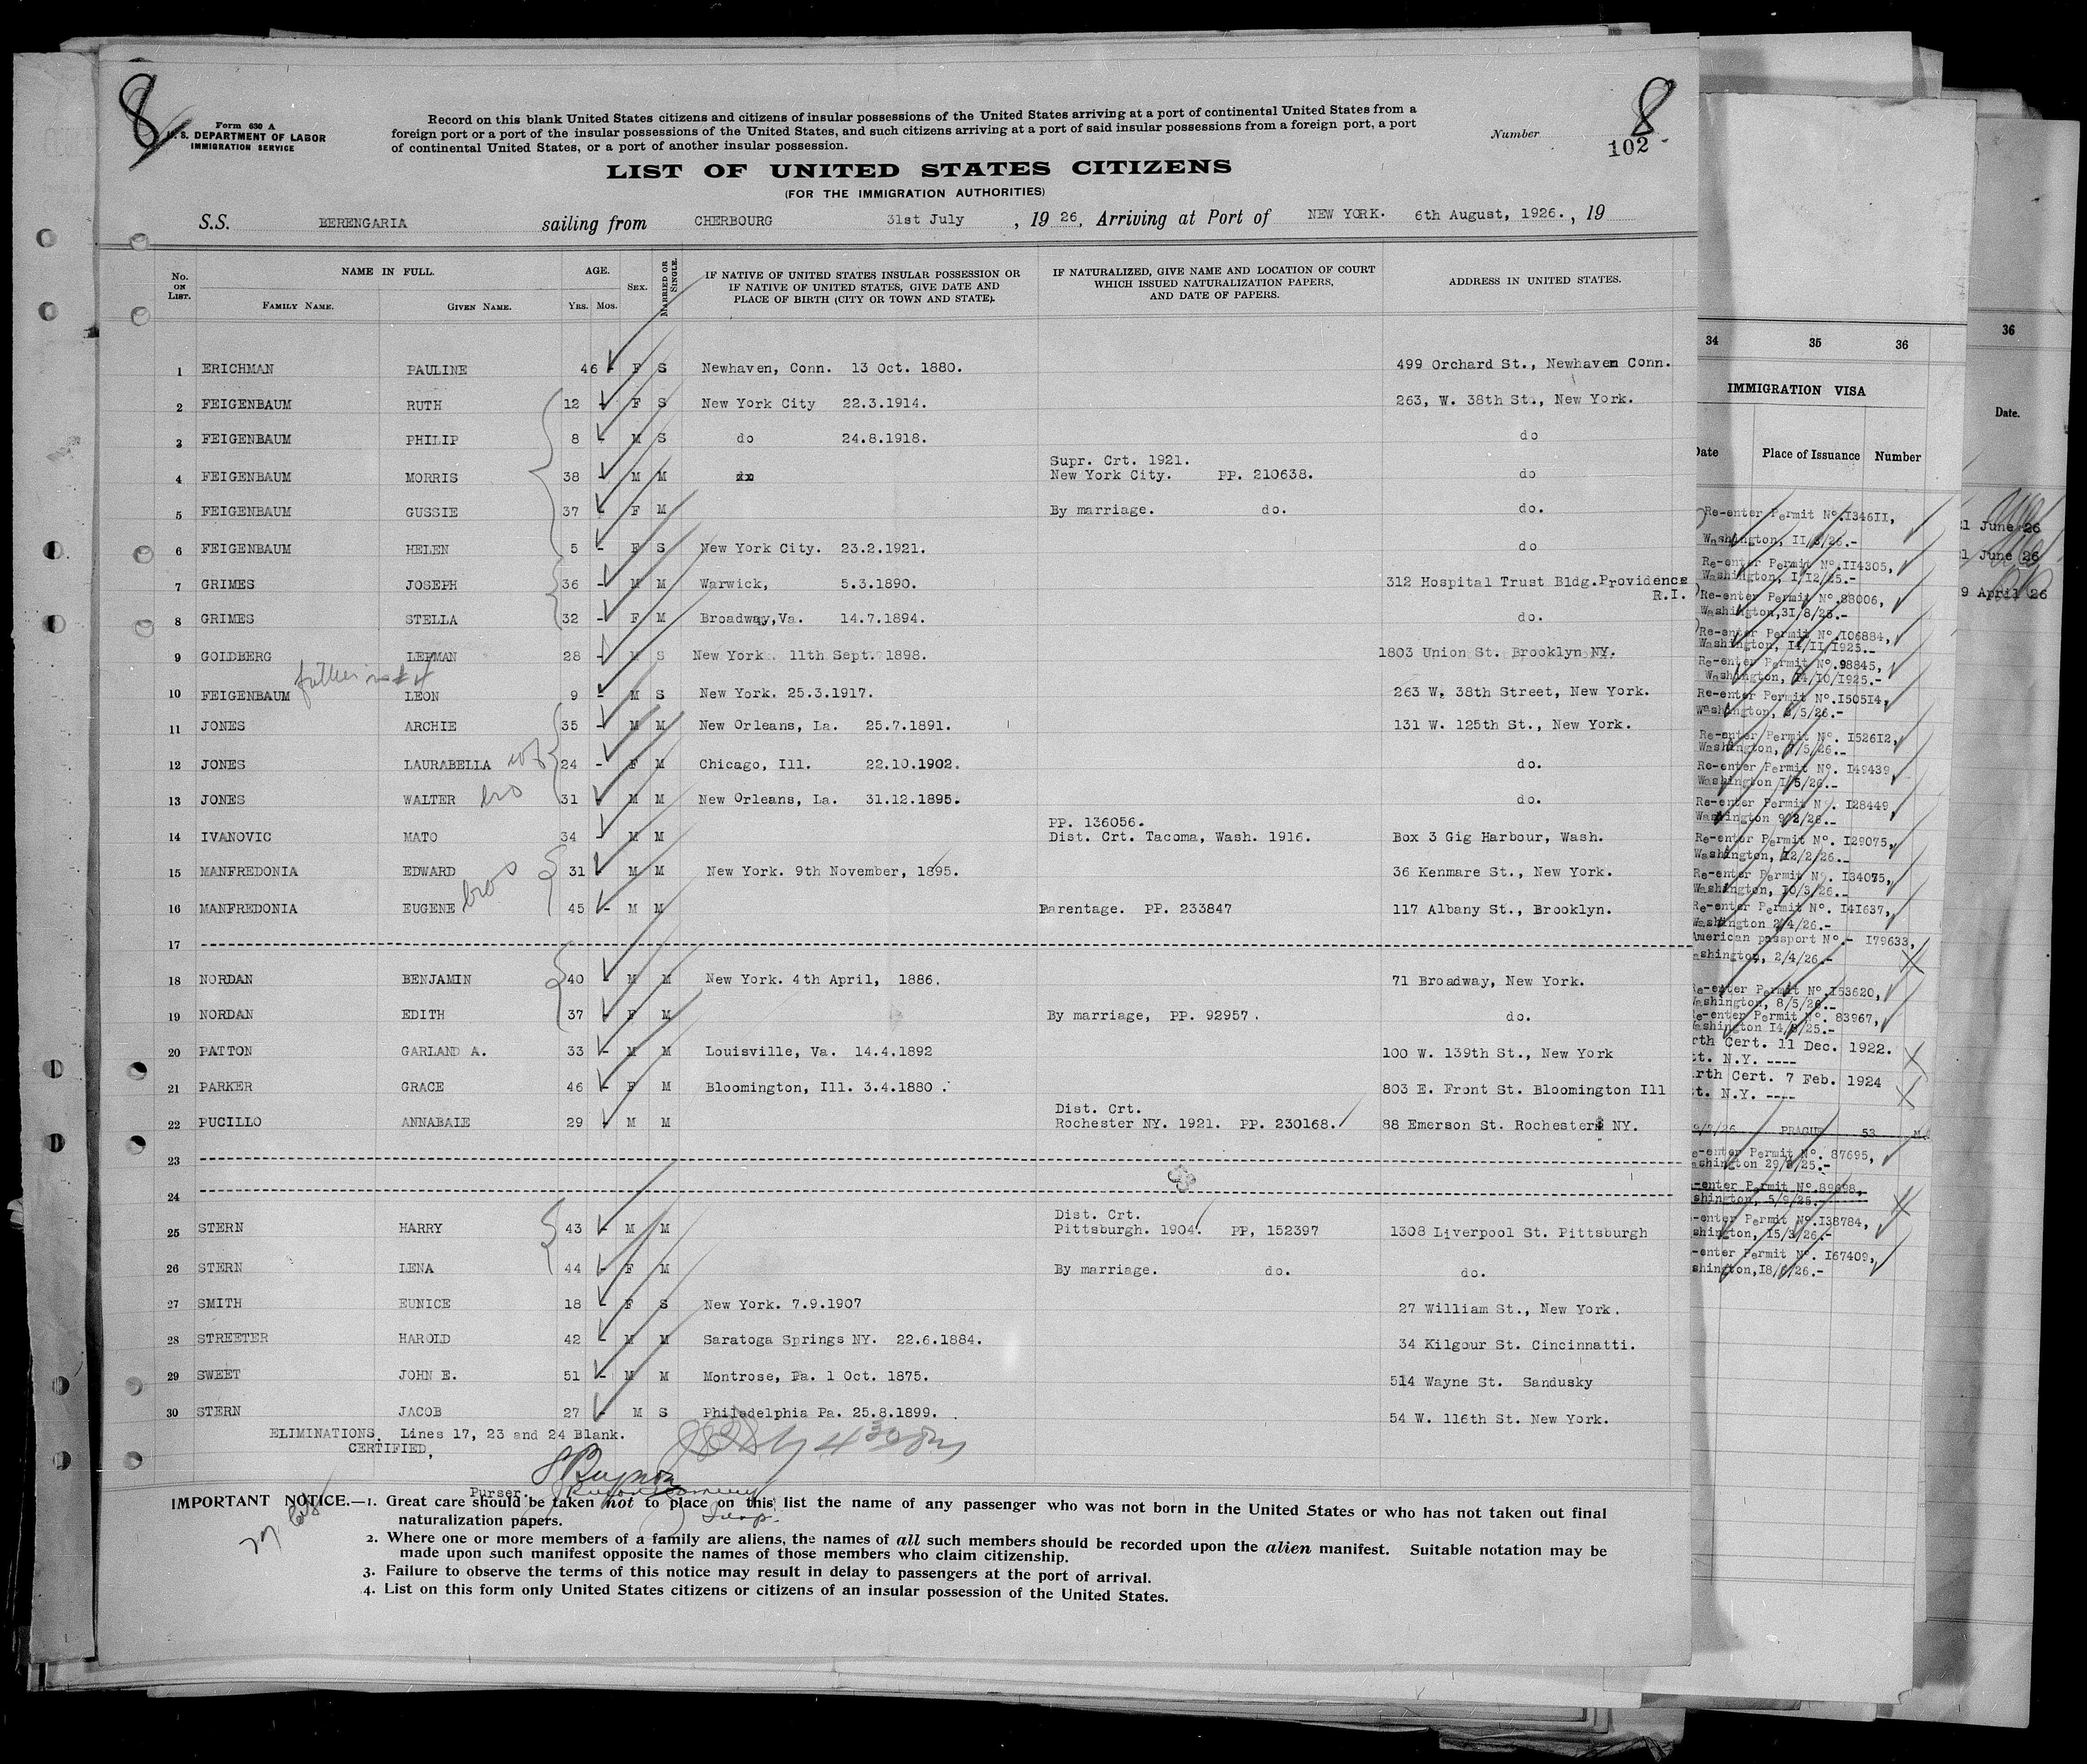 8
8
Form 630 A
U. S. DEPARTMENT OF LABOR
IMMIGRATION SERVICE
Record on this blank United States citizens and citizens of insular possessions of the United States arriving at a port of continental United States from a
foreign port or a port of the insular possessions of the United States, and such citizens arriving at a port of said insular possessions from a foreign port, a port
of continental United States, or a port of another insular possession.
Number
102
LIST OF UNITED STATES CITIZENS
(FOR THE IMMIGRATION AUTHORITIES)
S.S. BERENGARIA sailing from CHERBOURG 31st July, 19 26, Arriving at Port of NEW YORK. 6th August, 1926., 19
No. ON LIST. NAME IN FULL. AGE. SEX. MARRIED OR SINGLE. IF NATIVE OF UNITED STATES INSULAR POSSESSION OR IF NATIVE OF UNITED STATES, GIVE DATE AND PLACE OF BIRTH (CITY OR TOWN AND STATE). IF NATURALIZED, GIVE NAME AND LOCATION OF COURT WHICH ISSUED NATURALIZATION PAPERS, AND DATE OF PAPERS. ADDRESS IN UNITED STATES.
FAMILY NAME. GIVEN NAME. YRS. MOS.
1 ERICHMAN PAULINE 46 - F S Newhaven, Conn. 13 Oct. 1880. 499 Orchard St., Newhaven Conn.
2 FEIGENBAUM RUTH 12 - F S New York City 22.3.1914. 263, W. 38th St., New York.
3 FEIGENBAUM PHILIP 8 - M S do 24.8.1918. do
4 FEIGENBAUM MORRIS 38 - M M do Supr. Crt. 1921. New York City. PP. 210638. do
5 FEIGENBAUM GUSSIE 37 - F M By marriage. do. do.
6 FEIGENBAUM HELEN 5 - F S New York City. 23.2.1921. do
7 GRIMES JOSEPH 36 - M M Warwick, 5.3.1890. 312 Hospital Trust Bldg.Providence R.I.
8 GRIMES STELLA 32 - F M Broadway,Va. 14.7.1894. do.
9 GOLDBERG 28 - M S New York. 11th Sept. 1898. 1803 Union St. Brooklyn NY.
10 FEIGENBAUM LEON 9 - M S New York. 25.3.1917. 263 W. 38th Street, New York.
11 JONES ARCHIE 35 - M M New Orleans, La. 25.7.1891. 131 W. 125th St., New York.
12 JONES LAURABELLA wf 24 - F M Chicago, Ill. 22.10.1902. do.
13 JONES WALTER bro 31 M M New Orleans, La. 31.12.1895. do.
14 IVANOVIC MATO 34 - M M PP. 136056. Dist. Crt. Tacoma, Wash. 1916. Box 3 Gig Harbour, Wash.
15 MANFREDONIA EDWARD 31 M M New York. 9th November, 1895. 36 Kenmare St., New York.
16 MANFREDONIA EUGENE bros 45 - M M Parentage. PP. 233847 117 Albany St., Brooklyn.
17
18 NORDAN BENJAMIN 40 - M M New York. 4th April, 1886. 71 Broadway, New York.
19 NORDAN EDITH 37 - F M By marriage, PP. 92957. do.
20 PATTON GARLAND A. 33 - M M Louisville, Va. 14.4.1892 100 W. 139th St., New York
21 PARKER GRACE 46 - F M Bloomington, Ill. 3.4.1880. 803 E. Front St. Bloomington Ill
22 PUCILLO ANNABALE 29 M M Dist. Crt. Rochester NY. 1921. PP. 230168. 88 Emerson St. Rochester NY.
23
24
25 STERN HARRY 43 - M M Dist. Crt. Pittsburgh. 1904. PP, 152397 1308 Liverpool St. Pittsburgh
26 STERN LENA 44 - F M By marriage. do. do.
27 SMITH EUNICE 18 - F S New York. 7.9.1907 27 William St., New York.
28 STREETER HAROLD 42 - M M Saratoga Springs NY. 22.6.1884. 34 Kilgour St. Cincinnatti.
29 SWEET JOHN E. 51 - M M Montrose, Pa. 1 Oct. 1875. 514 Wayne St. Sandusky
30 STERN JACOB 27 - M S Philadelphia Pa. 25.8.1899. 54 W. 116th St. New York.
ELIMINATIONS. Lines 17, 23 and 24 Blank.
CERTIFIED,
Purser.
IMPORTANT NOTICE.—1. Great care should be taken not to place on this list the name of any passenger who was not born in the United States or who has not taken out final
naturalization papers.
2. Where one or more members of a family are aliens, the names of all such members should be recorded upon the alien manifest. Suitable notation may be
made upon such manifest opposite the names of those members who claim citizenship.
3. Failure to observe the terms of this notice may result in delay to passengers at the port of arrival.
4. List on this form only United States citizens or citizens of an insular possession of the United States.
34 35 36
IMMIGRATION VISA
Date Place of Issuance Number
Re-enter Permit Nº.I34611,
Washington, II/3/26.-
Re-enter Permit Nº.II4305,
Washington, I/I2/25.-
Re-enter Permit Nº.88006,
Washington,31/8/25.-
Re-enter Permit Nº.I06884,
Washington, I4/II/I925.-
Re-enter Permit Nº.98845,
Washington, I4/IO/I925.-
Re-enter Permit Nº.I50514,
Re-enter Permit Nº. I52612,
Re-enter Permit Nº. I49439
Re-enter Permit Nº. I28449
Washington 9/2/26.-
Re-enter Permit Nº. I29075,
Washington, I2/2/26.-
Re-enter Permit Nº. I34075,
Washington, IO/3/26.-
Re-enter Permit Nº. I41637,
Washington 2/4/26.-
American passport Nº.- I79633,
ashington, 2/4/26.-
Re-enter Permit Nº.I53620,
Washington, 8/5/26.-
e-enter Permit Nº. 83967,
rth Cert. 11 Dec. 1922.
t. N.Y. ----
rth Cert. 7 Feb. 1924
t. N.Y. ----
PRAGUE 53
e-enter Permit Nº. 87695,
-enter Permit Nº.
shington, 5/9/25.-
-enter Permit Nº.I38784,
shington, I5/3/26.-
-enter Permit Nº. I67409,
36
Date.
1 June 26
1 June 26
9 April 26